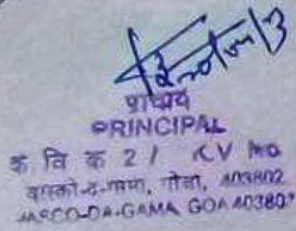 प्राचार्य
PRINCIPAL
के वि क 2 / KV No
वास्को-द-गामा, गोवा, 403802
VASCO-DA-GAMA GOA 403802